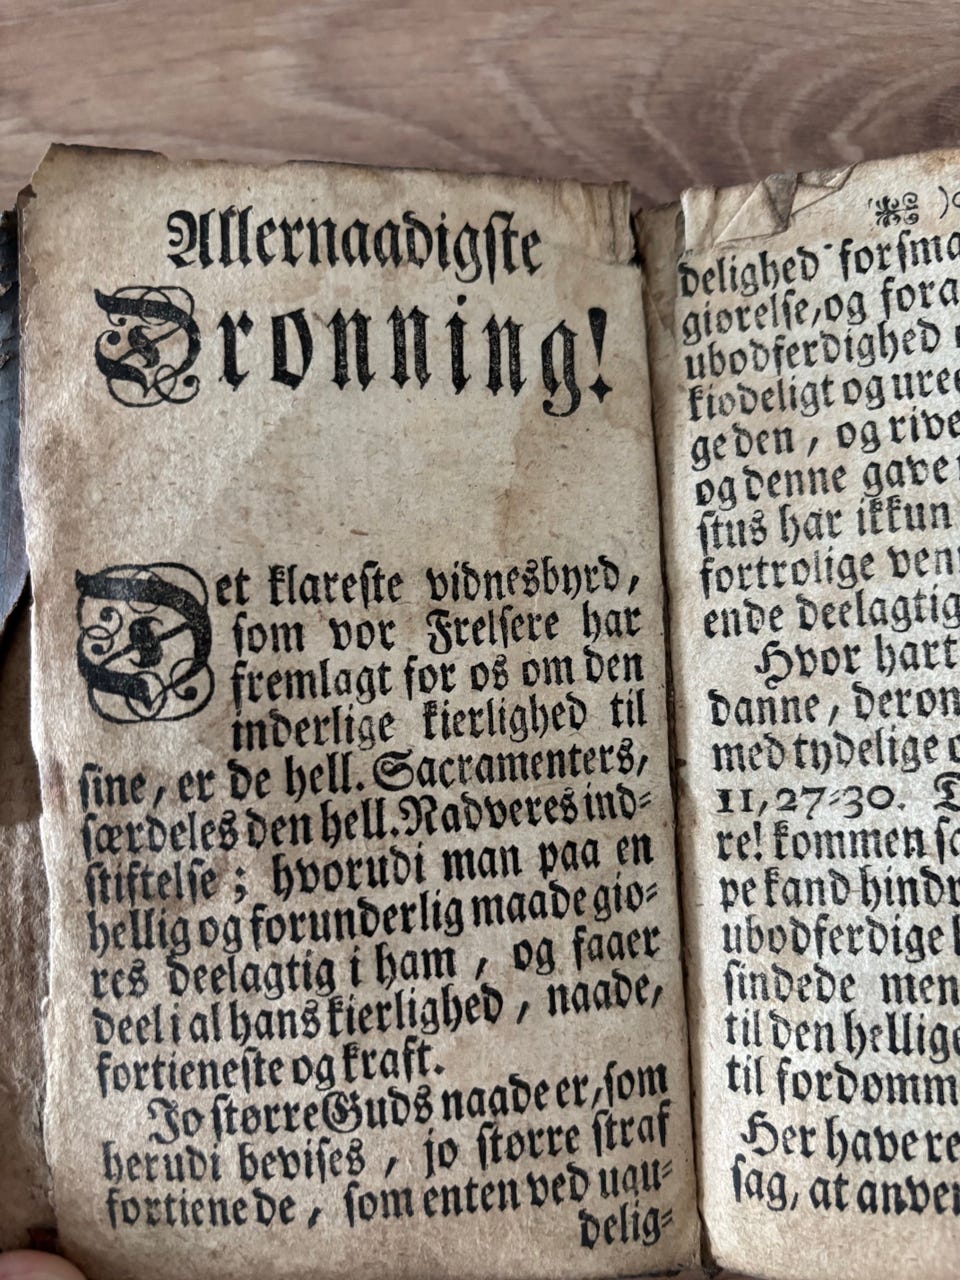 Allernaadigste
Dronning!
Det klareste vidnesbyrd,
som vor Frelsere har
fremlagt for os om den
inderlige kierlighed til
sine, er de hell. Sacramenters,
særdeles den hell. Nadveres ind-
stiftelse; hvorudi man paa en
hellig og forunderlig maade gio-
res deelagtig i ham, og faaer
deel i al hans kierlighed, naade,
fortieneste og kraft.
Jo større Guds naade er, som
herudi bevises, jo større straf
fortiene de, som enten ved ugu-
delig-
delighed forsma
giorelse, og fora
ubodferdighed
kiodeligt og uree
ge den, og rive
og denne gave
stus har ikkun
fortrolige ven
ende deelagtig
Hvor hart
danne, derom
med tydelige
11, 27-30.
re! kommen sa
pe kand hindr
ubodferdige
sindede men
til den hellige
til fordomm
Her have re
sag, at anven